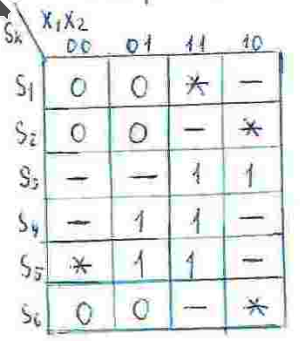 X₁X₂
Sₖ 00 01 11 10
S₁ 0 0 * —
S₂ 0 0 — *
S₃ — — 1 1
S₄ — 1 1 —
S₅ * 1 1 —
S₆ 0 0 — *